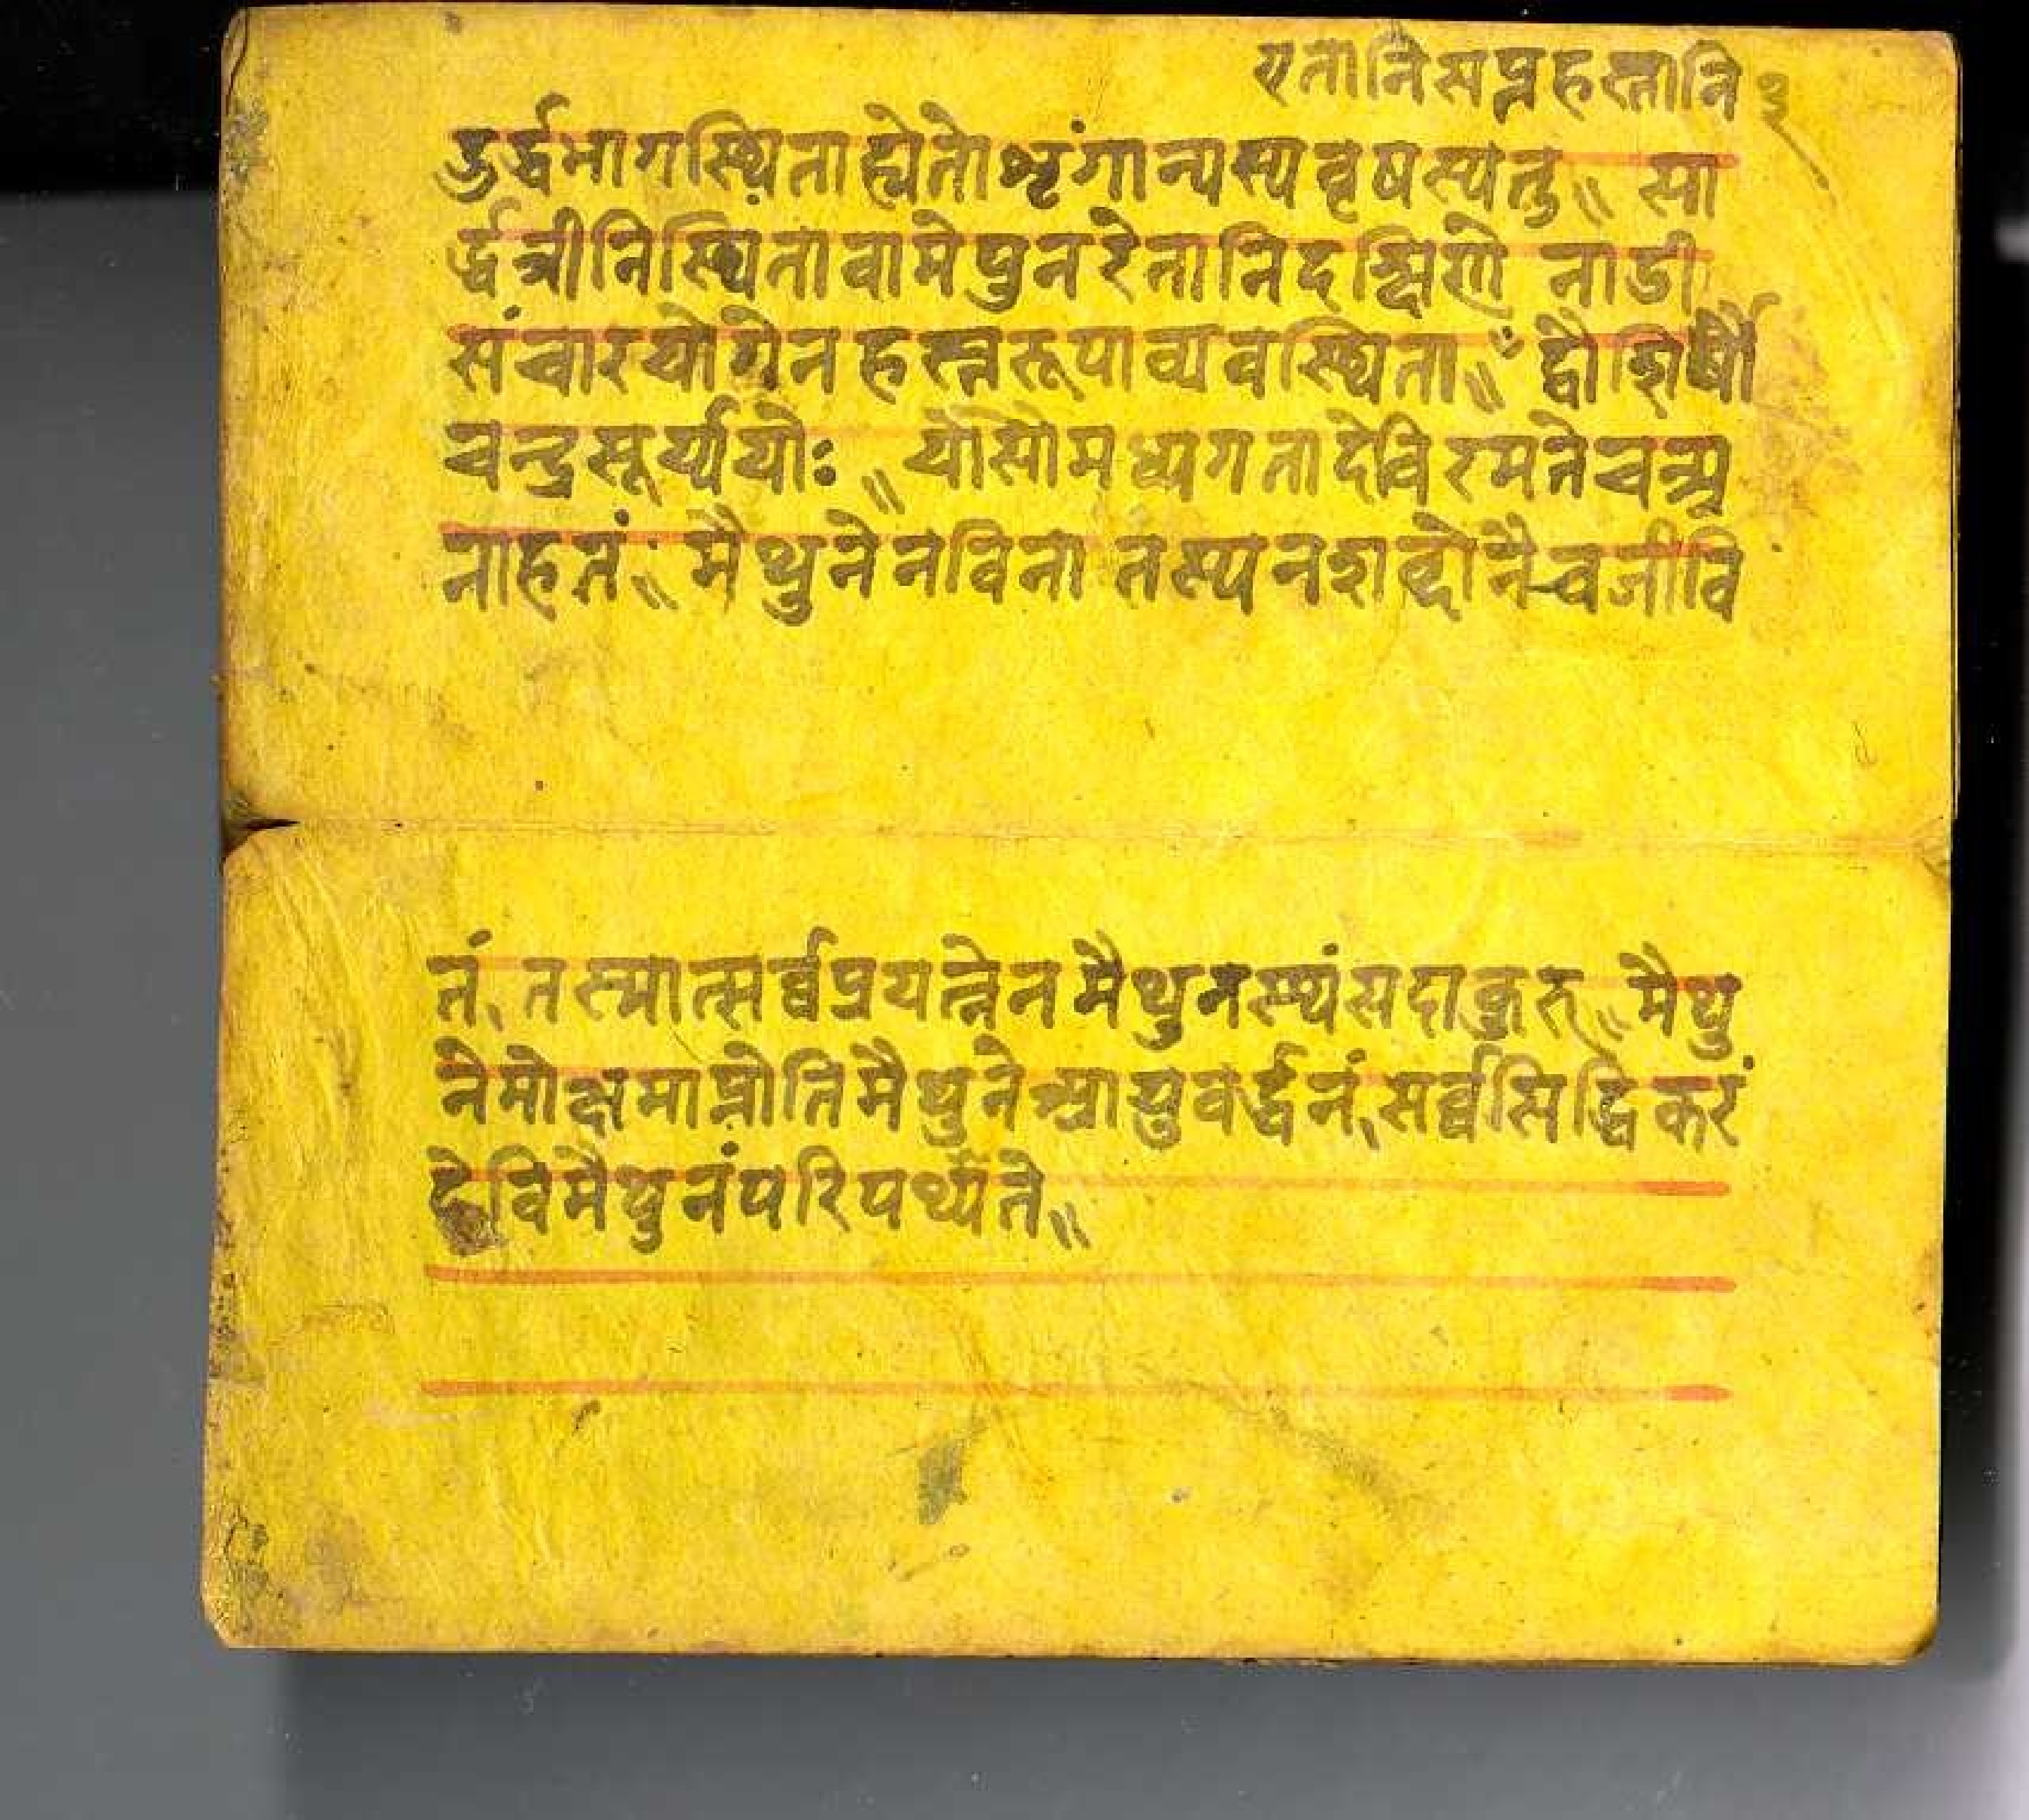 एतानिसप्तहस्तानि ३
उर्द्धभागस्थिता ह्येतो शृंगान्यस्य वृषस्यतु॥ सा
र्द्धत्रीनिस्थितावामे पुनरेतानिदक्षिणे नाडी
संचारयोगेन हस्तरूपाव्यवस्थिता॥ द्वौशिर्षौ
चन्द्रसूर्य्ययोः॥ योसोमध्यगतादेविरमते
नाहतं॥ मैथुनेनविना तस्य नशब्दोनैवजीवि
तं, तस्मात्सर्व्वप्रयत्नेन मैथुनस्थंसदाकुरु॥ मैथु
नेमोक्षमाप्नोतिमैथुनेआयुवर्द्धनं,सर्व्वसिद्धिकरं
देविमैथुनंपरिपथ्यते॥